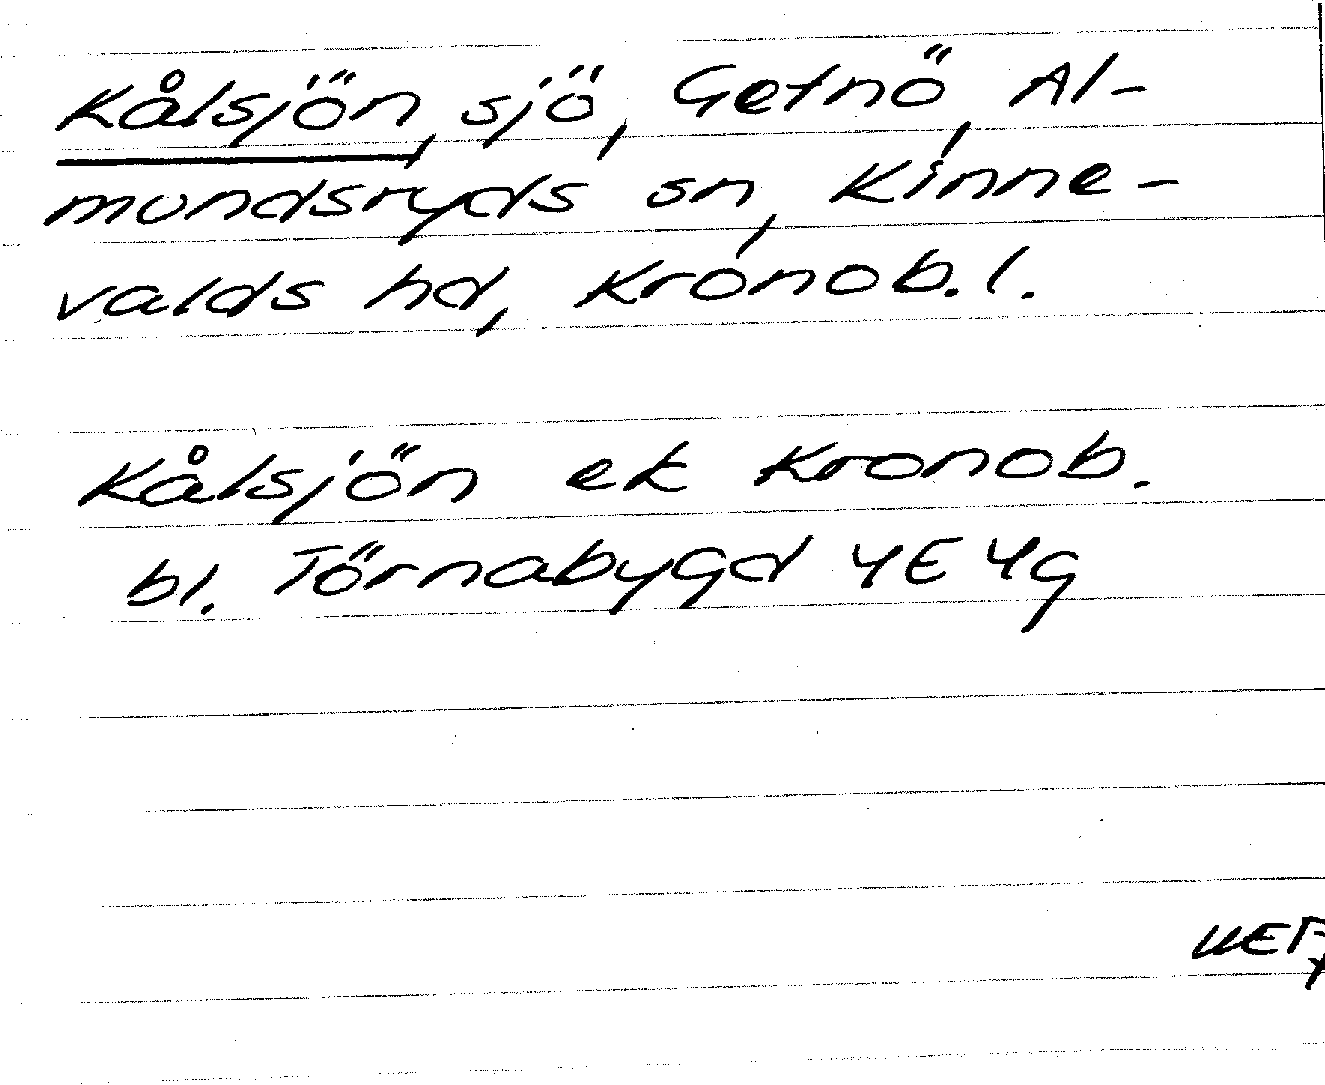 Kålsjön, sjö, Getnö, Al-
mundsryds sn, Kinne-
valds hd, Kronob. l.
Kålsjön ek Kronob.
bl. Törnabygd 4E4g